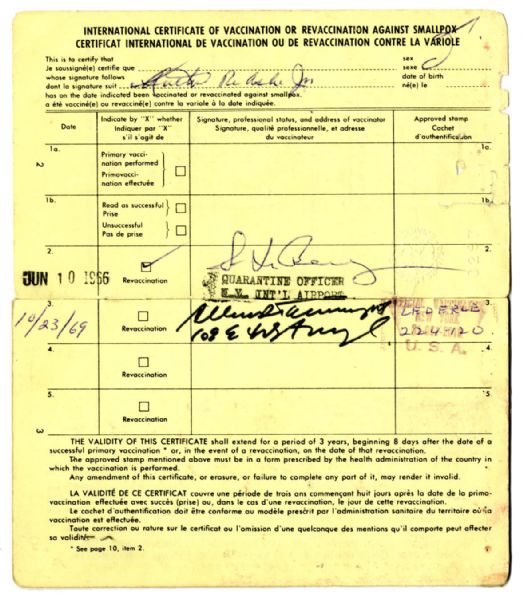 INTERNATIONAL CERTIFICATE OF VACCINATION OR REVACCINATION AGAINST SMALLPOX
CERTIFICAT INTERNATIONAL DE VACCINATION OU DE REVACCINATION CONTRE LA VARIOLE
This is to certify that
Je soussigné(e) certifie que
whose signature follows
dont la signature suit
sex
sexe
date of birth
né(e) le
has on the date indicated been vaccinated or revaccinated against smallpox.
a été vacciné(e) ou revacciné(e) contre la variole à la date indiquée.
Date
Indicate by "X" whether
Indiquer par "X"
s'il s'agit de
Signature, professional status, and address of vaccinator
Signature, qualité professionnelle, et adresse
du vaccinateur
Approved stamp
Cachet
d'authentification
1a.
Primary vacci-
nation performed
Primovacci-
nation effectuée
1a.
2
1b.
Read as successful
Prise
Unsuccessful
Pas de prise
1b.
2.
JUN 10 1966
Revaccination
QUARANTINE OFFICER
N.Y. INT'L AIRPORT
2.
3.
10/23/69
Revaccination
LEDERLE
U.S.A.
3.
4.
Revaccination
4.
5.
Revaccination
5.
3
THE VALIDITY OF THIS CERTIFICATE shall extend for a period of 3 years, beginning 8 days after the date of a
successful primary vaccination * or, in the event of a revaccination, on the date of that revaccination.
The approved stamp mentioned above must be in a form prescribed by the health administration of the country in
which the vaccination is performed.
Any amendment of this certificate, or erasure, or failure to complete any part of it, may render it invalid.
LA VALIDITÉ DE CE CERTIFICAT couvre une période de trois ans commençant huit jours après la date de la primo-
vaccination effectuée avec succès (prise) ou, dans le cas d'une revaccination, le jour de cette revaccination.
Le cachet d'authentification doit être conforme au modèle prescrit par l'administration sanitaire du territoire où la
vaccination est effectuée.
Toute correction ou rature sur le certificat ou l'omission d'une quelconque des mentions qu'il comporte peut affecter
sa validité.
* See page 10, item 2.